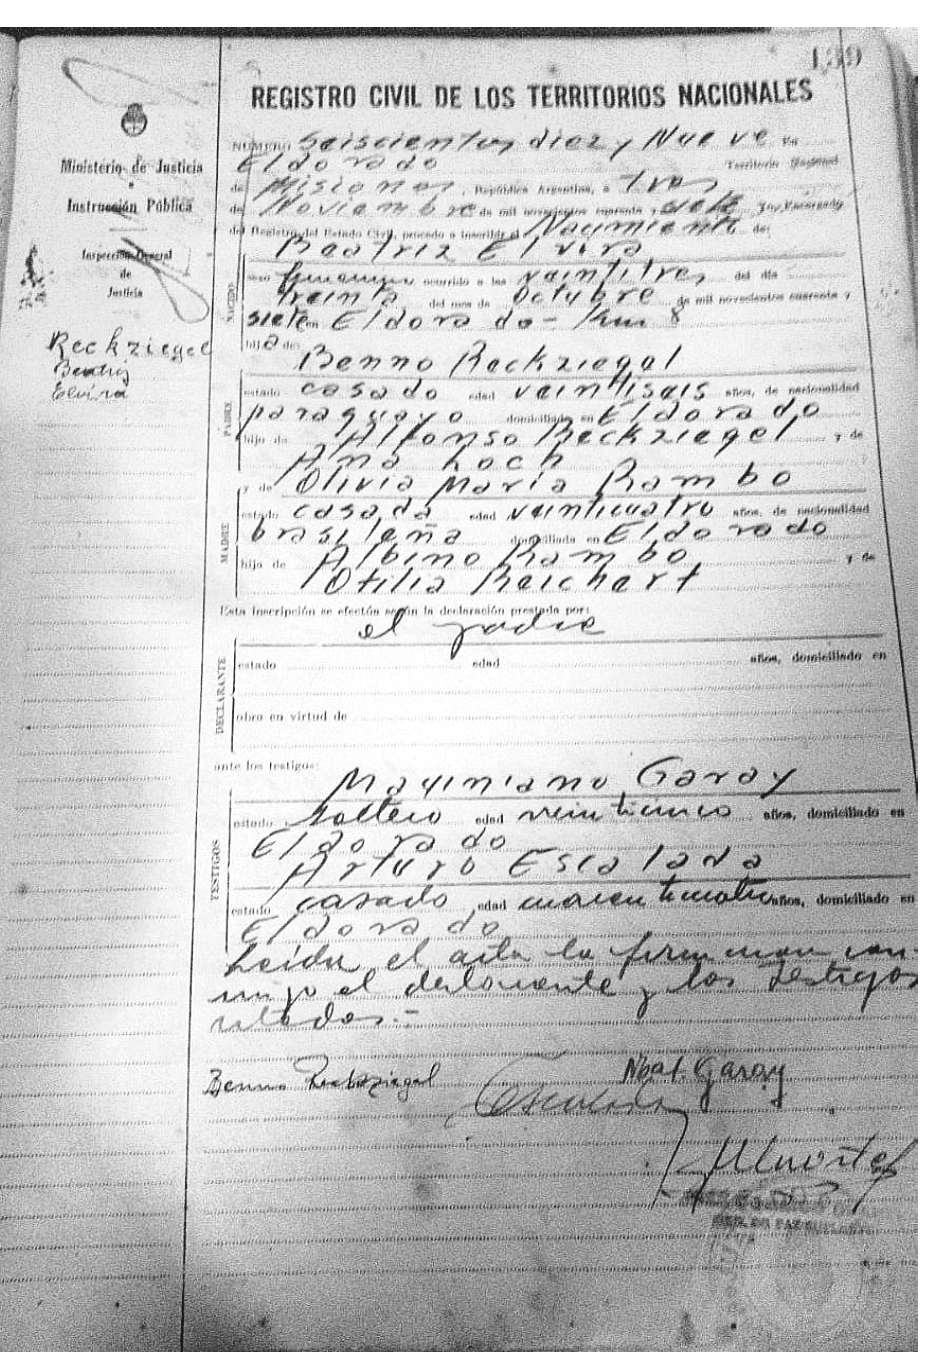 139
REGISTRO CIVIL DE LOS TERRITORIOS NACIONALES
Ministerio de Justicia
e
Instrucción Pública
Inspección General
de
Justicia
Reckziegel
Beatriz
Elvira
NUMERO Seiscientos diez y Nueve En
Eldorado Territorio Nacional
de Misiones, República Argentina, a Tres
de Noviembre de mil novecientos cuarenta y siete Yo, Encargado
del Registro del Estado Civil, procedo a inscribir el Nacimiento de:
Beatriz Elvira
NACIDO
sexo femenino ocurrido a las veintitres del día
treinta del mes de Octubre de mil novecientos cuarenta y
siete en Eldorado - Km 8
hija de:
Benno Reckziegel
PADRE
estado casado edad veintiseis años, de nacionalidad
paraguayo domiciliado en Eldorado
hijo de Alfonso Reckziegel y de
Ana Loch
y de Olivia María Rambo
MADRE
estado casada edad veinticuatro años, de nacionalidad
brasileña domiciliada en Eldorado
hija de Albino Rambo y de
Otilia Reichert
Esta inscripción se efectúa según la declaración prestada por:
el padre
DECLARANTE
estado edad años, domiciliado en
obra en virtud de
ante los testigos:
Maximiano Garay
TESTIGOS
estado soltero edad veinticinco años, domiciliado en
Eldorado
Arturo Escalada
estado casado edad años, domiciliado en
Eldorado
Leida el acta la firman con-
migo el declarante y los testigos
citados.-
Benno Reckziegel
Garay
Escalada